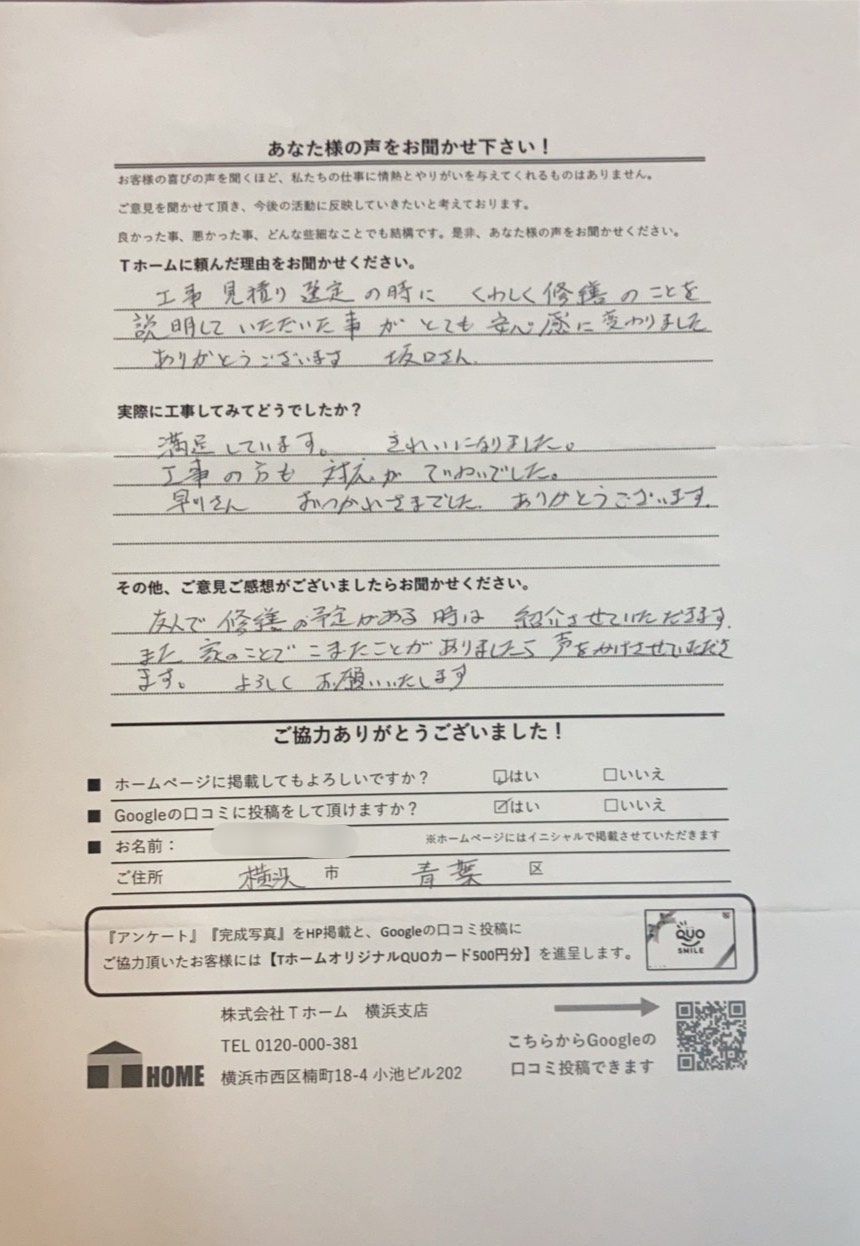 あなた様の声をお聞かせ下さい！
お客様の喜びの声を聞くほど、私たちの仕事に情熱とやりがいを与えてくれるものはありません。
ご意見を聞かせて頂き、今後の活動に反映していきたいと考えております。
良かった事、悪かった事、どんな些細なことでも結構です。是非、あなた様の声をお聞かせください。
Tホームに頼んだ理由をお聞かせください。
工事 見積り 選定の時に くわしく修繕のことを
説明していただいた事が とても 安心感に変わりました
ありがとうございます 坂口さん.
実際に工事してみてどうでしたか？
満足しています。 きれいになりました。
工事の方も 対応が ていねいでした。
早川さん おつかれさまでした. ありがとうございます.
その他、ご意見ご感想がございましたらお聞かせください。
友人で修繕の予定がある時は 紹介させていただきます.
また 家のことで こまたことがありましたら 声をかけさせていただき
ます。 よろしく お願いいたします
ご協力ありがとうございました！
■ ホームページに掲載してもよろしいですか？ ☑はい □いいえ
■ Googleの口コミに投稿をして頂けますか？ ☑はい □いいえ
■ お名前： ※ホームページにはイニシャルで掲載させていただきます
ご住所 横浜 市 青葉 区
『アンケート』『完成写真』をHP掲載と、Googleの口コミ投稿に
ご協力頂いたお客様には【TホームオリジナルQUOカード500円分】を進呈します。
QUO
SMILE
株式会社Tホーム 横浜支店
TEL 0120-000-381
横浜市西区楠町18-4 小池ビル202
T HOME
こちらからGoogleの
口コミ投稿できます